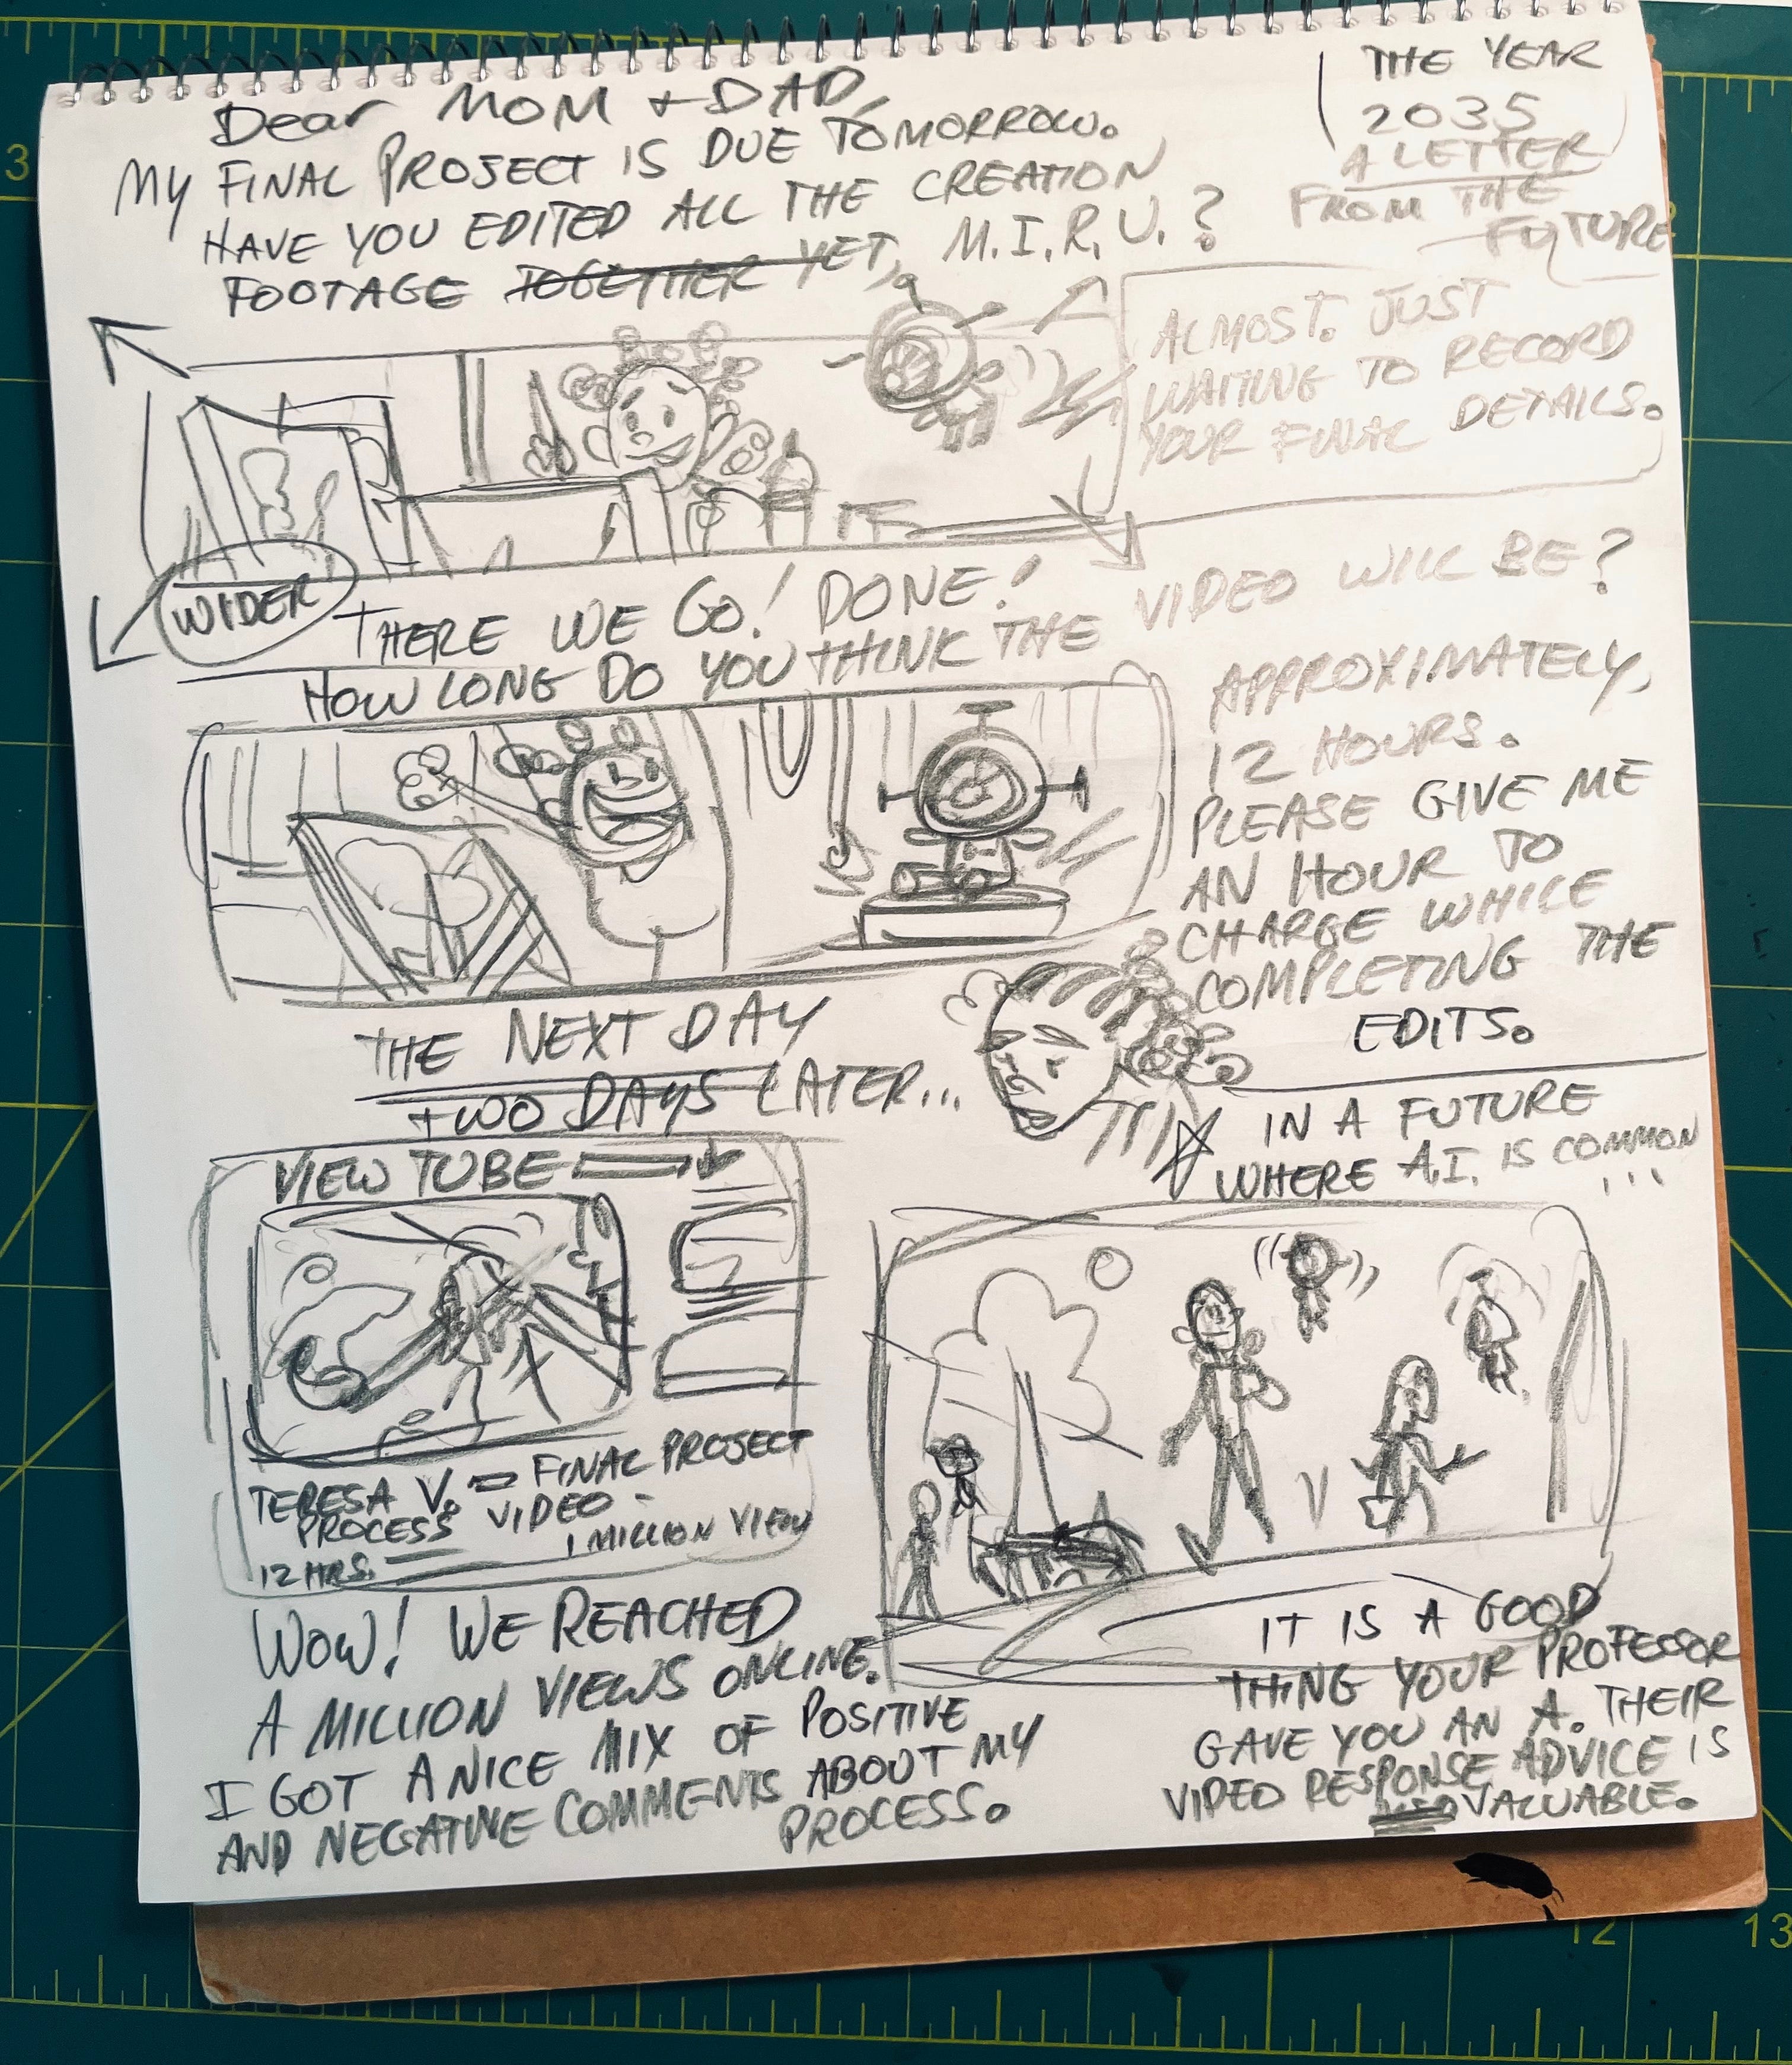 Dear MOM + DAD,
MY FINAL PROJECT IS DUE TOMORROW.
HAVE YOU EDITED ALL THE CREATION
FOOTAGE TOGETHER YET, M.I.R.U.?
THE YEAR
2035
A LETTER
FROM THE
FUTURE
ALMOST. JUST
WAITING TO RECORD
YOUR FINAL DETAILS.
WIDER
THERE WE GO! DONE!
HOW LONG DO YOU THINK THE VIDEO WILL BE?
APPROXIMATELY,
12 HOURS.
PLEASE GIVE ME
AN HOUR TO
CHARGE WHILE
COMPLETING THE
EDITS.
THE NEXT DAY
TWO DAYS LATER...
VIEW TUBE
TERESA V. FINAL PROJECT
PROCESS VIDEO -
12 HRS. 1 MILLION VIEW
WOW! WE REACHED
A MILLION VIEWS ONLINE.
I GOT A NICE MIX OF POSITIVE
AND NEGATIVE COMMENTS ABOUT MY
PROCESS.
IN A FUTURE
WHERE A.I. IS COMMON
...
IT IS A GOOD
THING YOUR PROFESSOR
GAVE YOU AN A. THEIR
VIDEO RESPONSE ADVICE IS
VALUABLE.
3
12
13